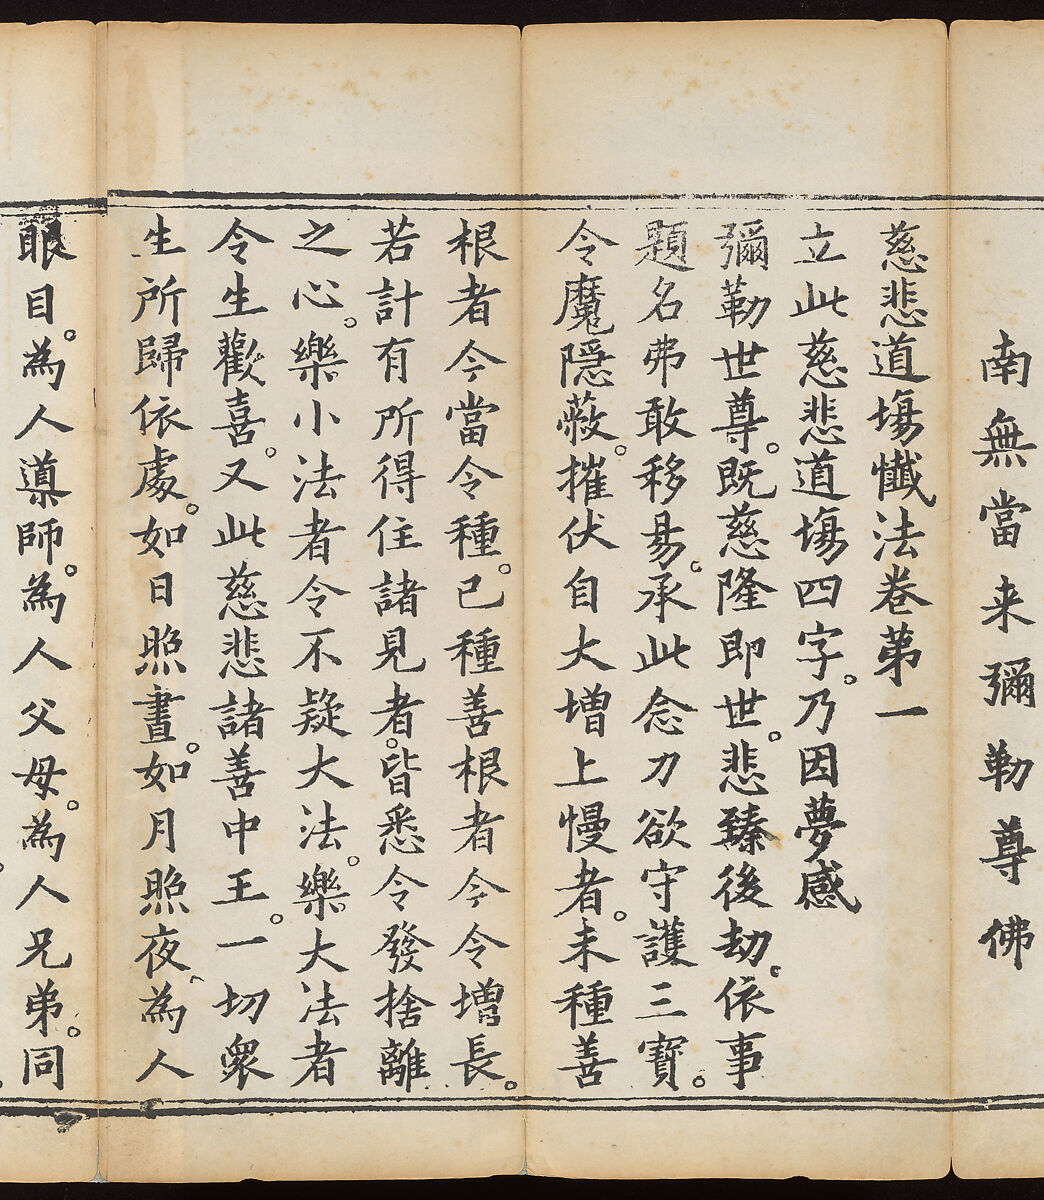 南無當来彌勒尊佛
慈悲道場懺法卷第一
立此慈悲道場四字。乃因夢感
彌勒世尊。既慈隆即世。悲臻後劫。依事
題名弗敢移易。承此念力欲守護三寶。
令魔隱蔽。摧伏自大增上慢者。未種善
根者今當令種。已種善根者今令增長。
若計有所得住諸見者。皆悉令發捨離
之心。樂小法者令不疑大法。樂大法者
令生歡喜。又此慈悲諸善中王。一切衆
生所歸依處。如日照晝。如月照夜、為人
眼目。為人導師。為人父母。為人兄弟。同